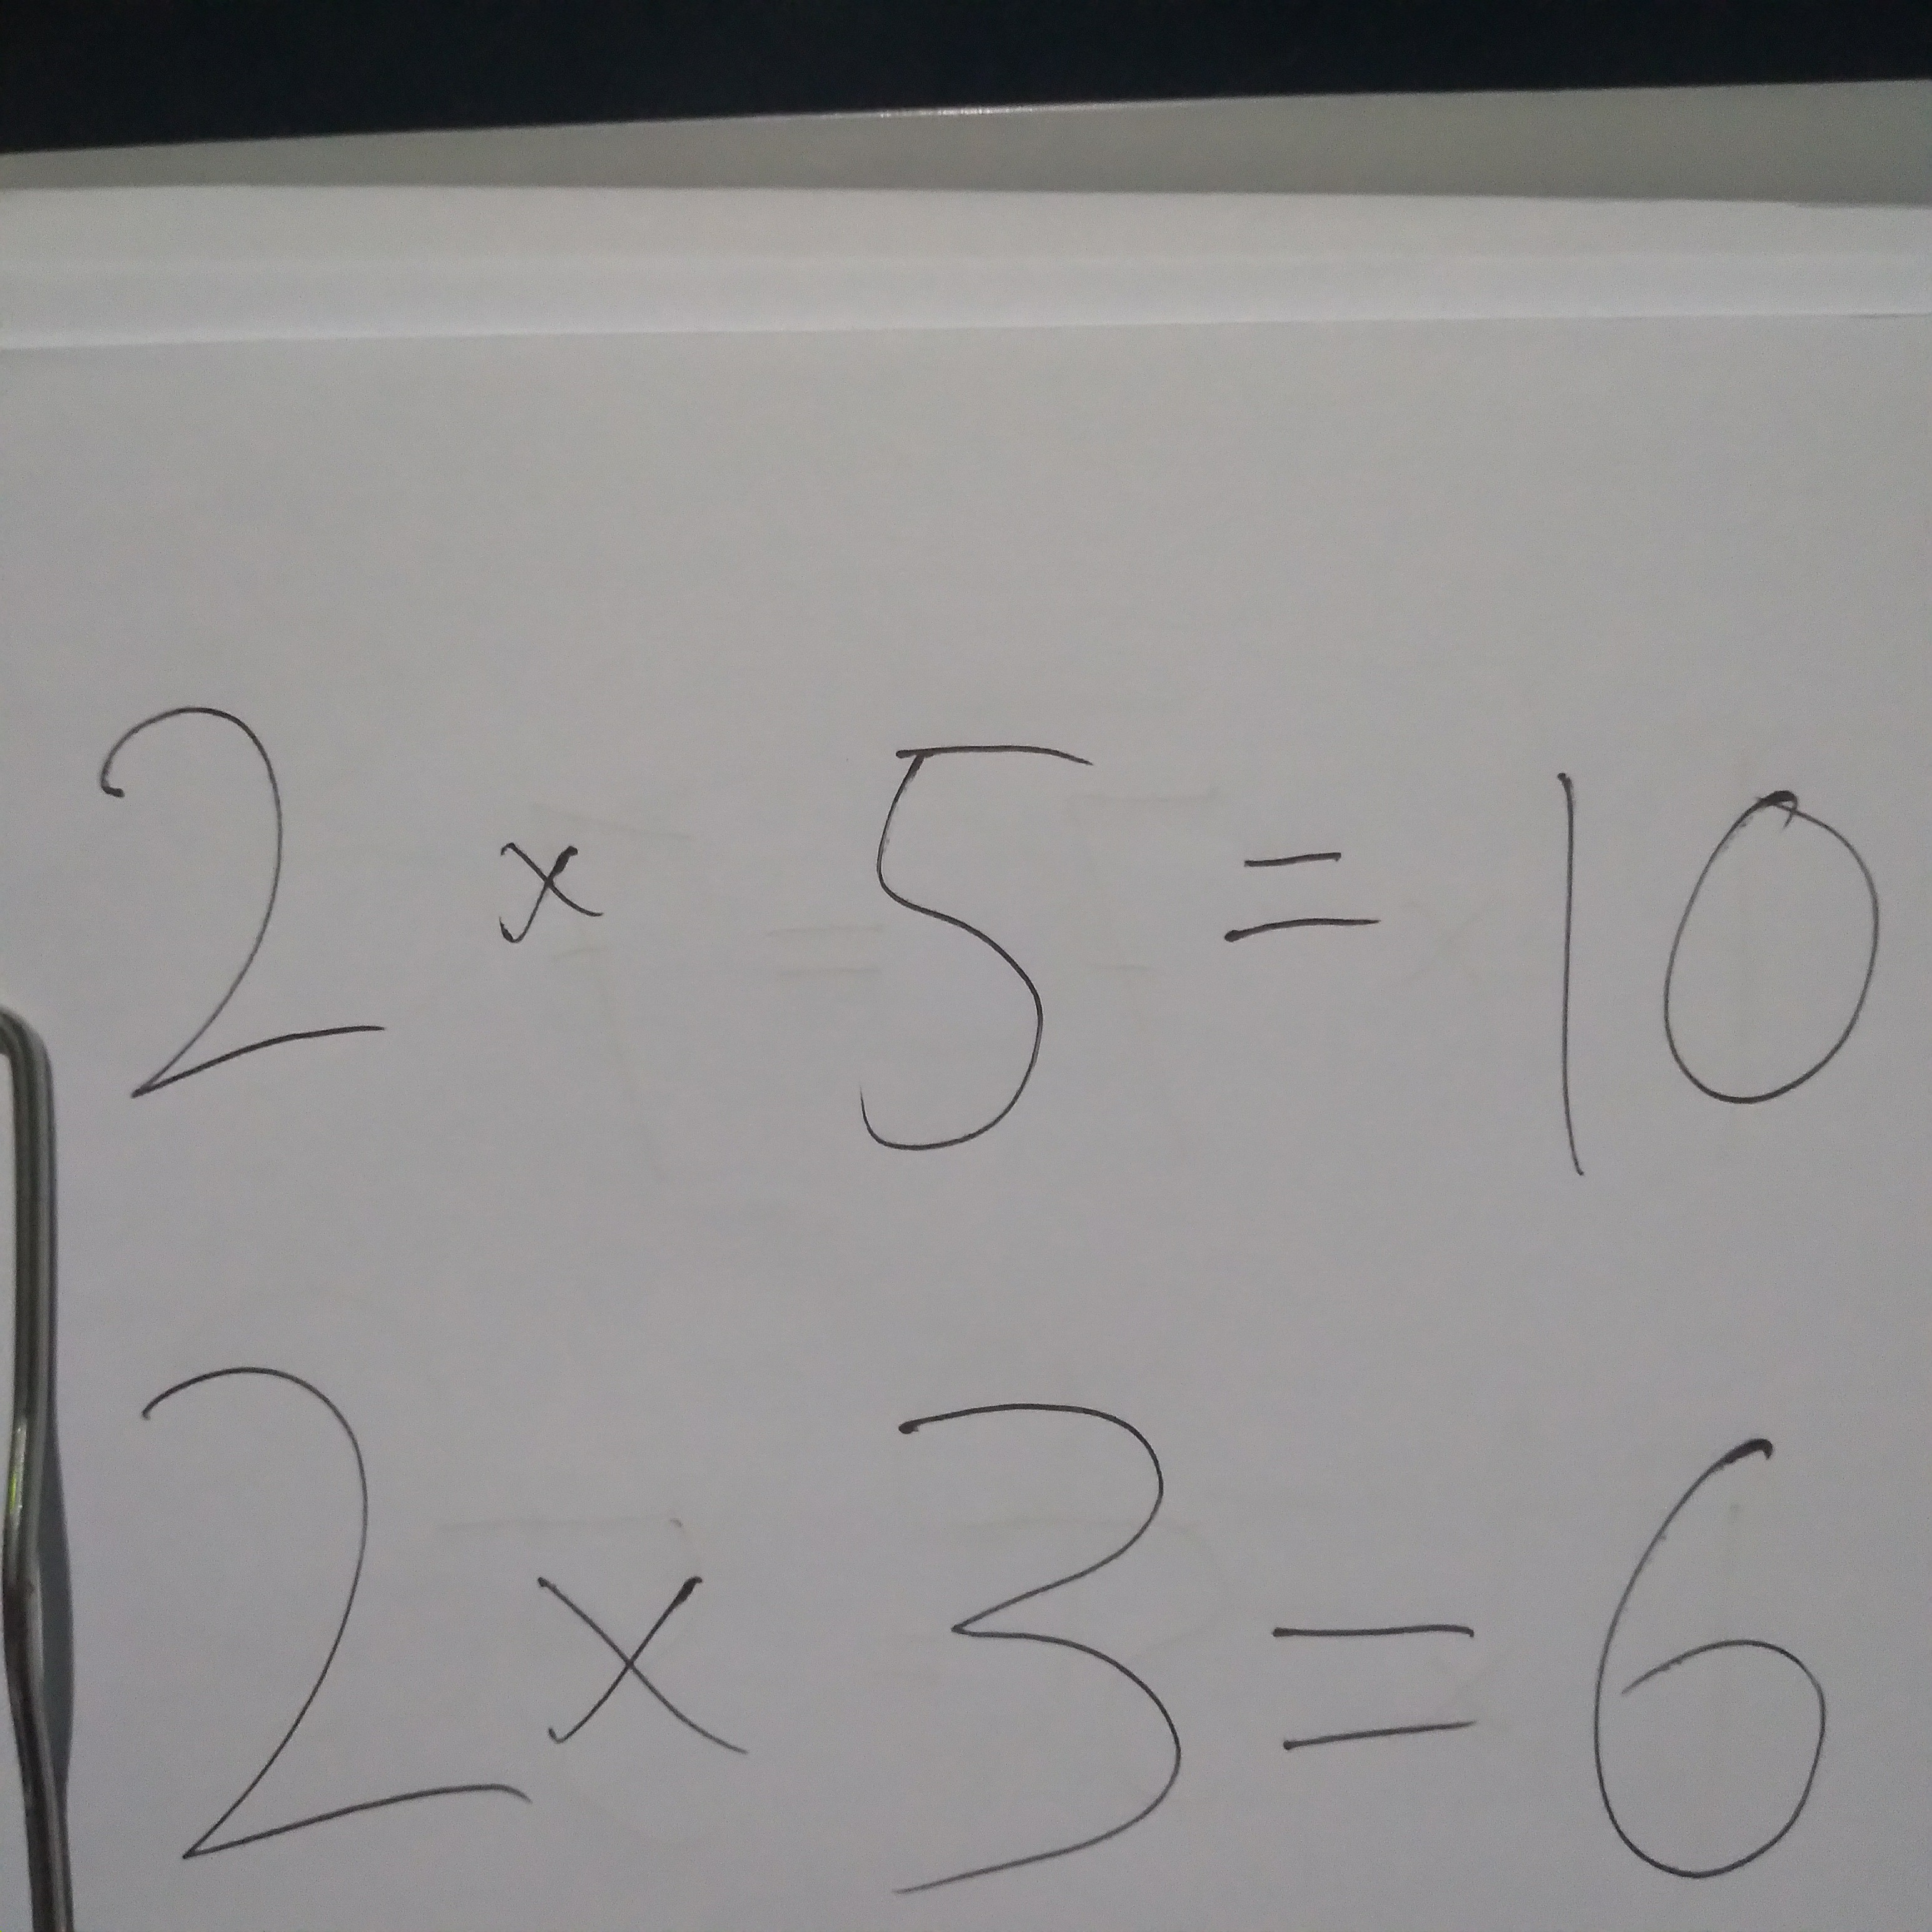 2 × 5 = 10
2 × 3 = 6